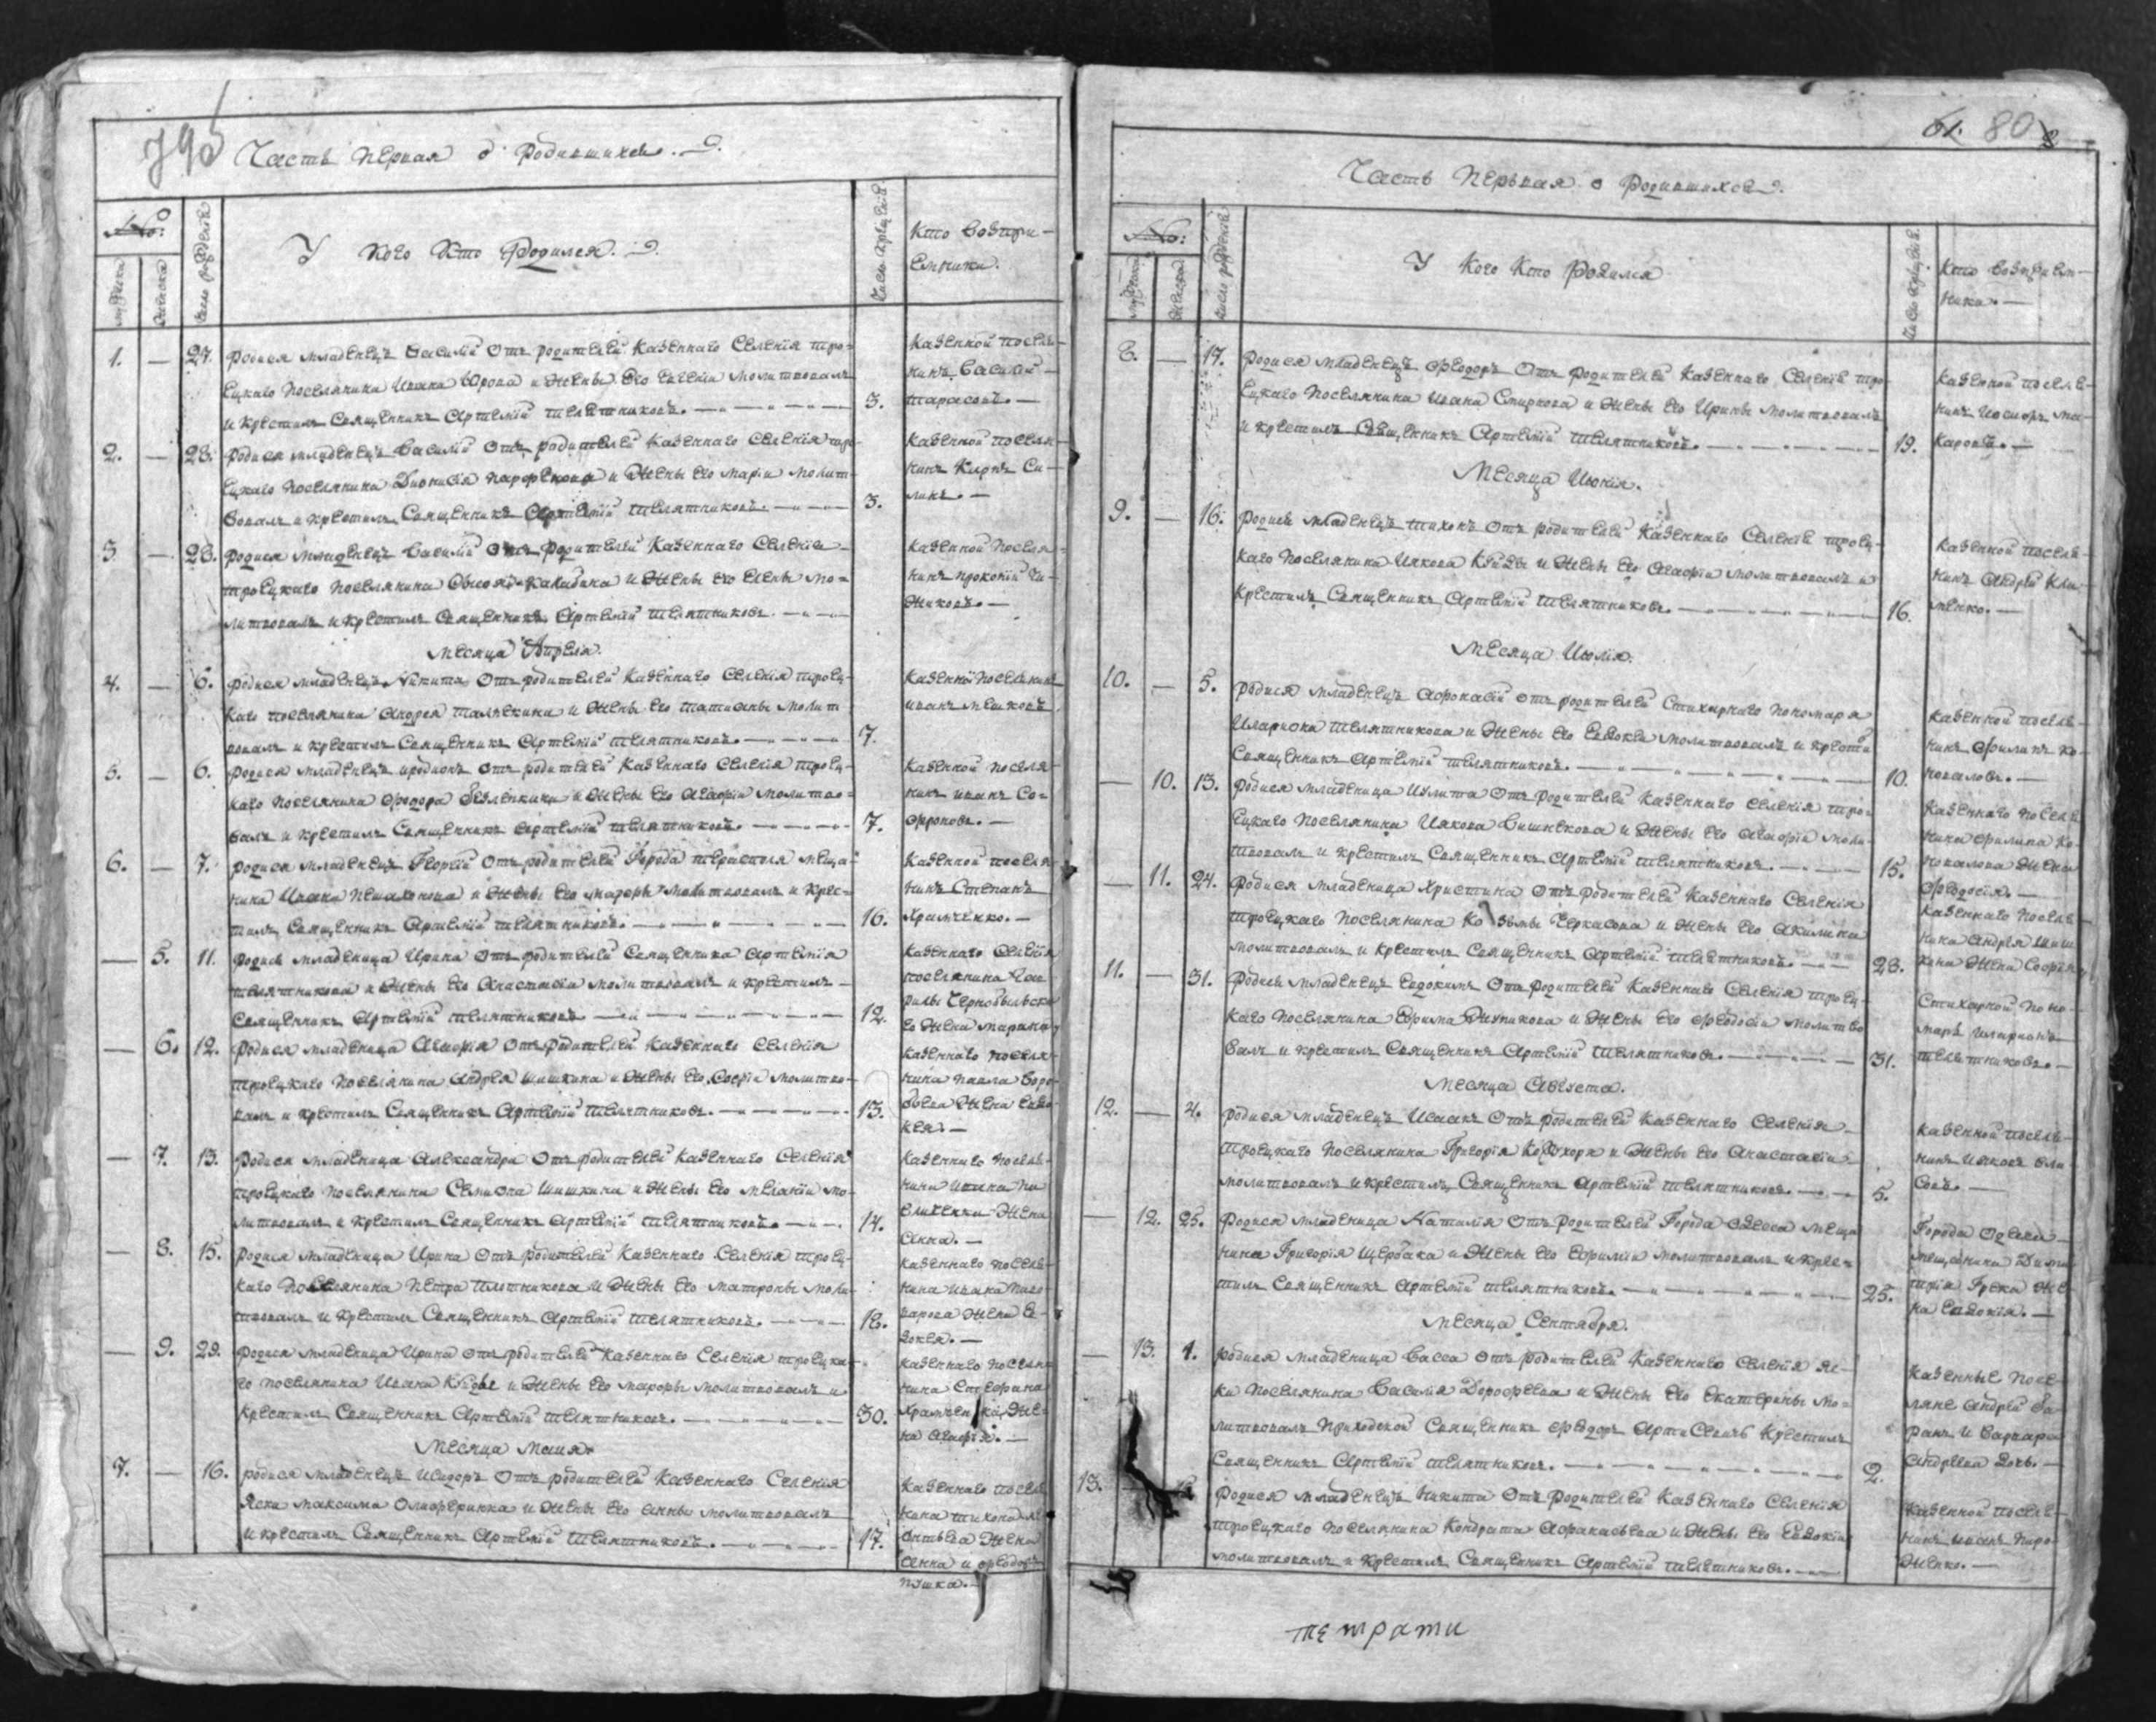 79об
Часть первая о родившихся.
№:
мужеска
женска
Число рождения
У кого кто родился.
Число крещения
Кто восприемники.
1. — 27. Родися младенецъ Василій отъ родителей казеннаго селенія тро=
ецкаго поселянина Ивана и жены его Евгеніи молитвовалъ
и крестилъ Священникъ Артемій Телятниковъ. 3.
Казенной поселя-
нинъ Василій
Тарасовъ.
2. — 28. Родися младенецъ Василій отъ родителей казеннаго селенія тро-
ецкаго поселянина Дионисія Парфенова и жены его Маріи молит-
вовалъ и крестилъ Священникъ Артемій Телятниковъ. 3.
Казенной поселя-
нинъ Карпъ Си-
линъ.
3 — 28. Родися младенецъ Василій отъ родителей казеннаго селенія
троецкаго поселянина и жены его Елены мо=
литвовалъ и крестилъ Священникъ Артемій Телятниковъ.
Казенной поселя-
нинъ Прокопій Чи-
жиковъ.
Месяца Апреля.
4. — 6. Родися младенецъ Никита отъ родителей казеннаго селенія троец-
каго поселянина Андрея и жены его Татианы молит
вовалъ и крестилъ Священникъ Артемій Телятниковъ. 7.
Казенной поселянинъ
Иванъ Мешковъ
5. — 6. Родися младенецъ Иродионъ отъ родителей казеннаго селенія троец-
каго поселянина Феодора и жены его Агафіи молитво=
валъ и крестилъ Священникъ Артемій Телятниковъ. 7.
Казенной поселя-
нинъ Иванъ Со=
фроновъ.
6. — 7. Родися младенецъ Георгій отъ родителей Города Тирасполя меща-
нина Ивана и жены его Марфы молитвовалъ и крес=
тилъ Священникъ Артемій Телятниковъ. 16.
Казенной поселя-
нинъ Степанъ
Храмченко.
— 5. 11. Родися младеница Ирина отъ родителей Священника Артемія
Телятникова и жены его Анастасіи молитвовалъ и крестилъ
Священникъ Артемій Телятниковъ 12.
Казеннаго селенія
поселянина Гав-
рилы Чернобыльска
го жена Марина
— 6. 12. Родися младеница Агафія отъ родителей казеннаго селенія
троецкаго поселянина Андрея Шишкина и жены его Софіи молитво-
валъ и крестилъ Священникъ Артемій Телятниковъ. 13.
Казеннаго поселя-
нина Павла Воро-
бьева жена Евдо-
кея.
— 7. 13. Родися младеница Александра отъ родителей казеннаго селенія
троецкаго поселянина Семиона Шишкина и жены его Меланіи мо-
литвовалъ и крестилъ Священникъ Артемій Телятниковъ. 14.
Казеннаго поселя-
нина Ивана
жена
Анна.
— 8. 15. Родися младеница Ирина отъ родителей казеннаго селенія троец-
каго поселянина Петра Плотникова и жены его Матроны моли-
твовалъ и крестилъ Священникъ Артемій Телятниковъ. 18.
Казеннаго поселя-
нина Ивана Пиво
варова жена Ев-
докея.
— 9. 29. Родися младеница Ирина отъ родителей казеннаго селенія троецка-
го поселянина Ивана и жены его Марфы молитвовалъ и
крестилъ Священникъ Артемій Телятниковъ. 30.
Казеннаго поселя
нина Стефана
Храмченка же-
на Агафія.
Месяца Маия
7. — 16. Родися младенецъ Исидоръ отъ родителей казеннаго селенія
Яски Максима Олиференка и жены его Анны молитвовалъ
и крестилъ Священникъ Артемій Телятниковъ. 17.
Казеннаго поселя
нина Тихона Ле
онтьева жена
Анна и Феодоръ
Пушка.
61. 80
Часть первая о родившихся.
№:
мужеска
женска
Число рождения
У кого кто родился
Число крещения
Кто восприем-
ники.
8. — 17. Родися младенецъ Феодоръ отъ родителей казеннаго селенія тро-
ецкаго поселянина Ивана Смирнова и жены его Ирины молитвовалъ
и крестилъ Священникъ Артемій Телятниковъ. 19.
Казенной поселя-
нинъ Иосифъ Ма-
каровъ.
Месяца Июнія.
9. — 16. Родися младенецъ Тихонъ отъ родителей казеннаго селенія троец-
каго поселянина Иякова и жены его Агафіи молитвовалъ и
крестилъ Священникъ Артемій Телятниковъ. 16.
Казенной поселя-
нинъ Андрей Кли-
менко.
Месяца Июлія.
10. — 5. Родися младенецъ Афонасій отъ родителей Стихарнаго пономаря
Илариона Телятникова и жены его Евдокеи молитвовалъ и крести
Священникъ Артемій Телятниковъ. 10.
Казенной поселя-
нинъ Филипъ Ко-
новаловъ.
— 10. 13. Родися младеница Иулита отъ родителей казеннаго селенія тро=
ецкаго поселянина Иякова Вишнекова и жены его Агафіи моли-
твовалъ и крестилъ Священникъ Артемій Телятниковъ. 15.
Казеннаго поселя
нина Филипа Ко-
новалова жена
Феодосія.
— 11. 24. Родися младеница Христина отъ родителей казеннаго селенія
троецкаго поселянина Козьмы Черкасова и жены его Акилины
молитвовалъ и крестилъ Священникъ Артемій Телятниковъ. 28.
Казеннаго поселя-
нина Андрея Шиш
кина жена Софія
11. — 31. Родися младенецъ Евдокимъ отъ родителей казеннаго селенія троец-
каго поселянина Ефима и жены его Феодосіи молитво
валъ и крестилъ Священникъ Артемій Телятниковъ. 31.
Стихарной поно-
марь Иларионъ
Телятниковъ.
Месяца Августа.
12. — 4. Родися младенецъ Исаакъ отъ родителей казеннаго селенія
троецкаго поселянина Григорія и жены его Анастасіи
молитвовалъ и крестилъ Священникъ Артемій Телятниковъ. 5.
Казенной поселя-
нинъ Ияковъ Вла
совъ.
— 12. 25. Родися младеница Наталія отъ родителей Города Одесса меща
нина Григорія Щербака и жены его Ефиміи молитвовалъ и крес=
тилъ Священникъ Артемій Телятниковъ. 25.
Города Одесса
мещанина Дими
трія Грека же-
на Евдокія.
Месяца Сентября.
— 13. 1. Родися младеница Васса отъ родителей казеннаго селенія Яс-
ки поселянина Василія Дорофеева и жены его Екатерины мо=
литвовалъ приходской Священникъ Феодоръ крестилъ
Священникъ Артемій Телятниковъ. 2.
Казенные посе-
ляне Андрей Ба-
ранъ и Варвара
Андреева дочь.
13. Родися младенецъ Никита отъ родителей казеннаго селенія
троецкаго поселянина Кондрата Афанасьева и жены его Евдокіи
молитвовалъ и крестилъ Священникъ Артемій Телятниковъ.
Казенной поселя-
нинъ Иванъ Пиро-
женко.